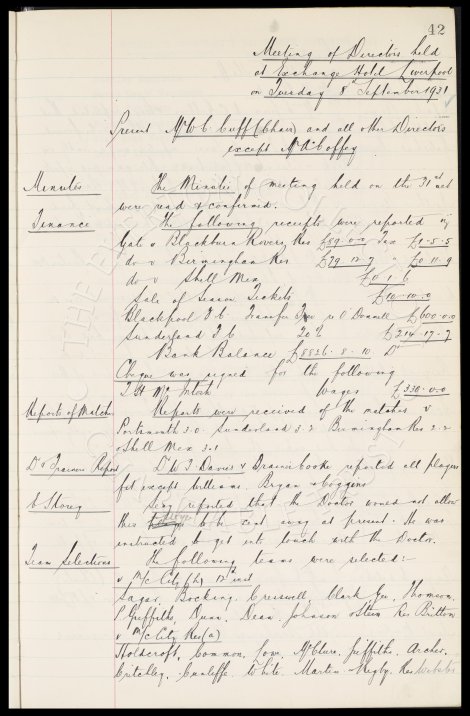 42
Meeting of Directors held
at Exchange Hotel Liverpool
on Tuesday 8th September 1931
Present Mr W. C. Cuff (Chair) and all other Directors
except Mr A Coffey
Minutes The Minutes of meeting held on the 31st ult
were read & confirmed.
Finance The following receipts were reported viz
Gate v Blackburn Rovers Res £89.0.0 Tax £1-5-5
do v Birmingham Res £79-12-9 " £0.11.9
do v Shell Mex £0.1.6
Sale of Season Tickets £10-10.0
Blackpool F.C. Transfer Fee v O'Donnell £600-0.0
Sunderland F.C. 20% £214-17-7
Bank Balance £8826-8-10 Dr
Cheque was signed for the following
T H McIntosh Wages £330-0.0
Reports of Matches Reports were received of the matches v
Portsmouth 3.0 Sunderland 3.2 Birmingham Res 2-2
& Shell Mex 3.1
Dr & Trainers Report Dr W. J. Davies & Trainer Cooke reported all players
fit except Williams. Bryan & Coggins
Secy reported that the Doctor would not allow
this to be sent away at present. He was
instructed to get into touch with the Doctor.
Team Selections The following teams were selected:-
v M/c City (h) 12th inst
Sagar, Bocking. Cresswell, Clark Gee, Thomson.
P Griffiths, Dunn, Dean, Johnson & Stein Res Britton
v M/c City Res (a)
Holdcroft, Common. Lowe. McClure. Griffiths. Archer.
Critchley, Cunliffe. White. Martin & Rigby. Res Webster